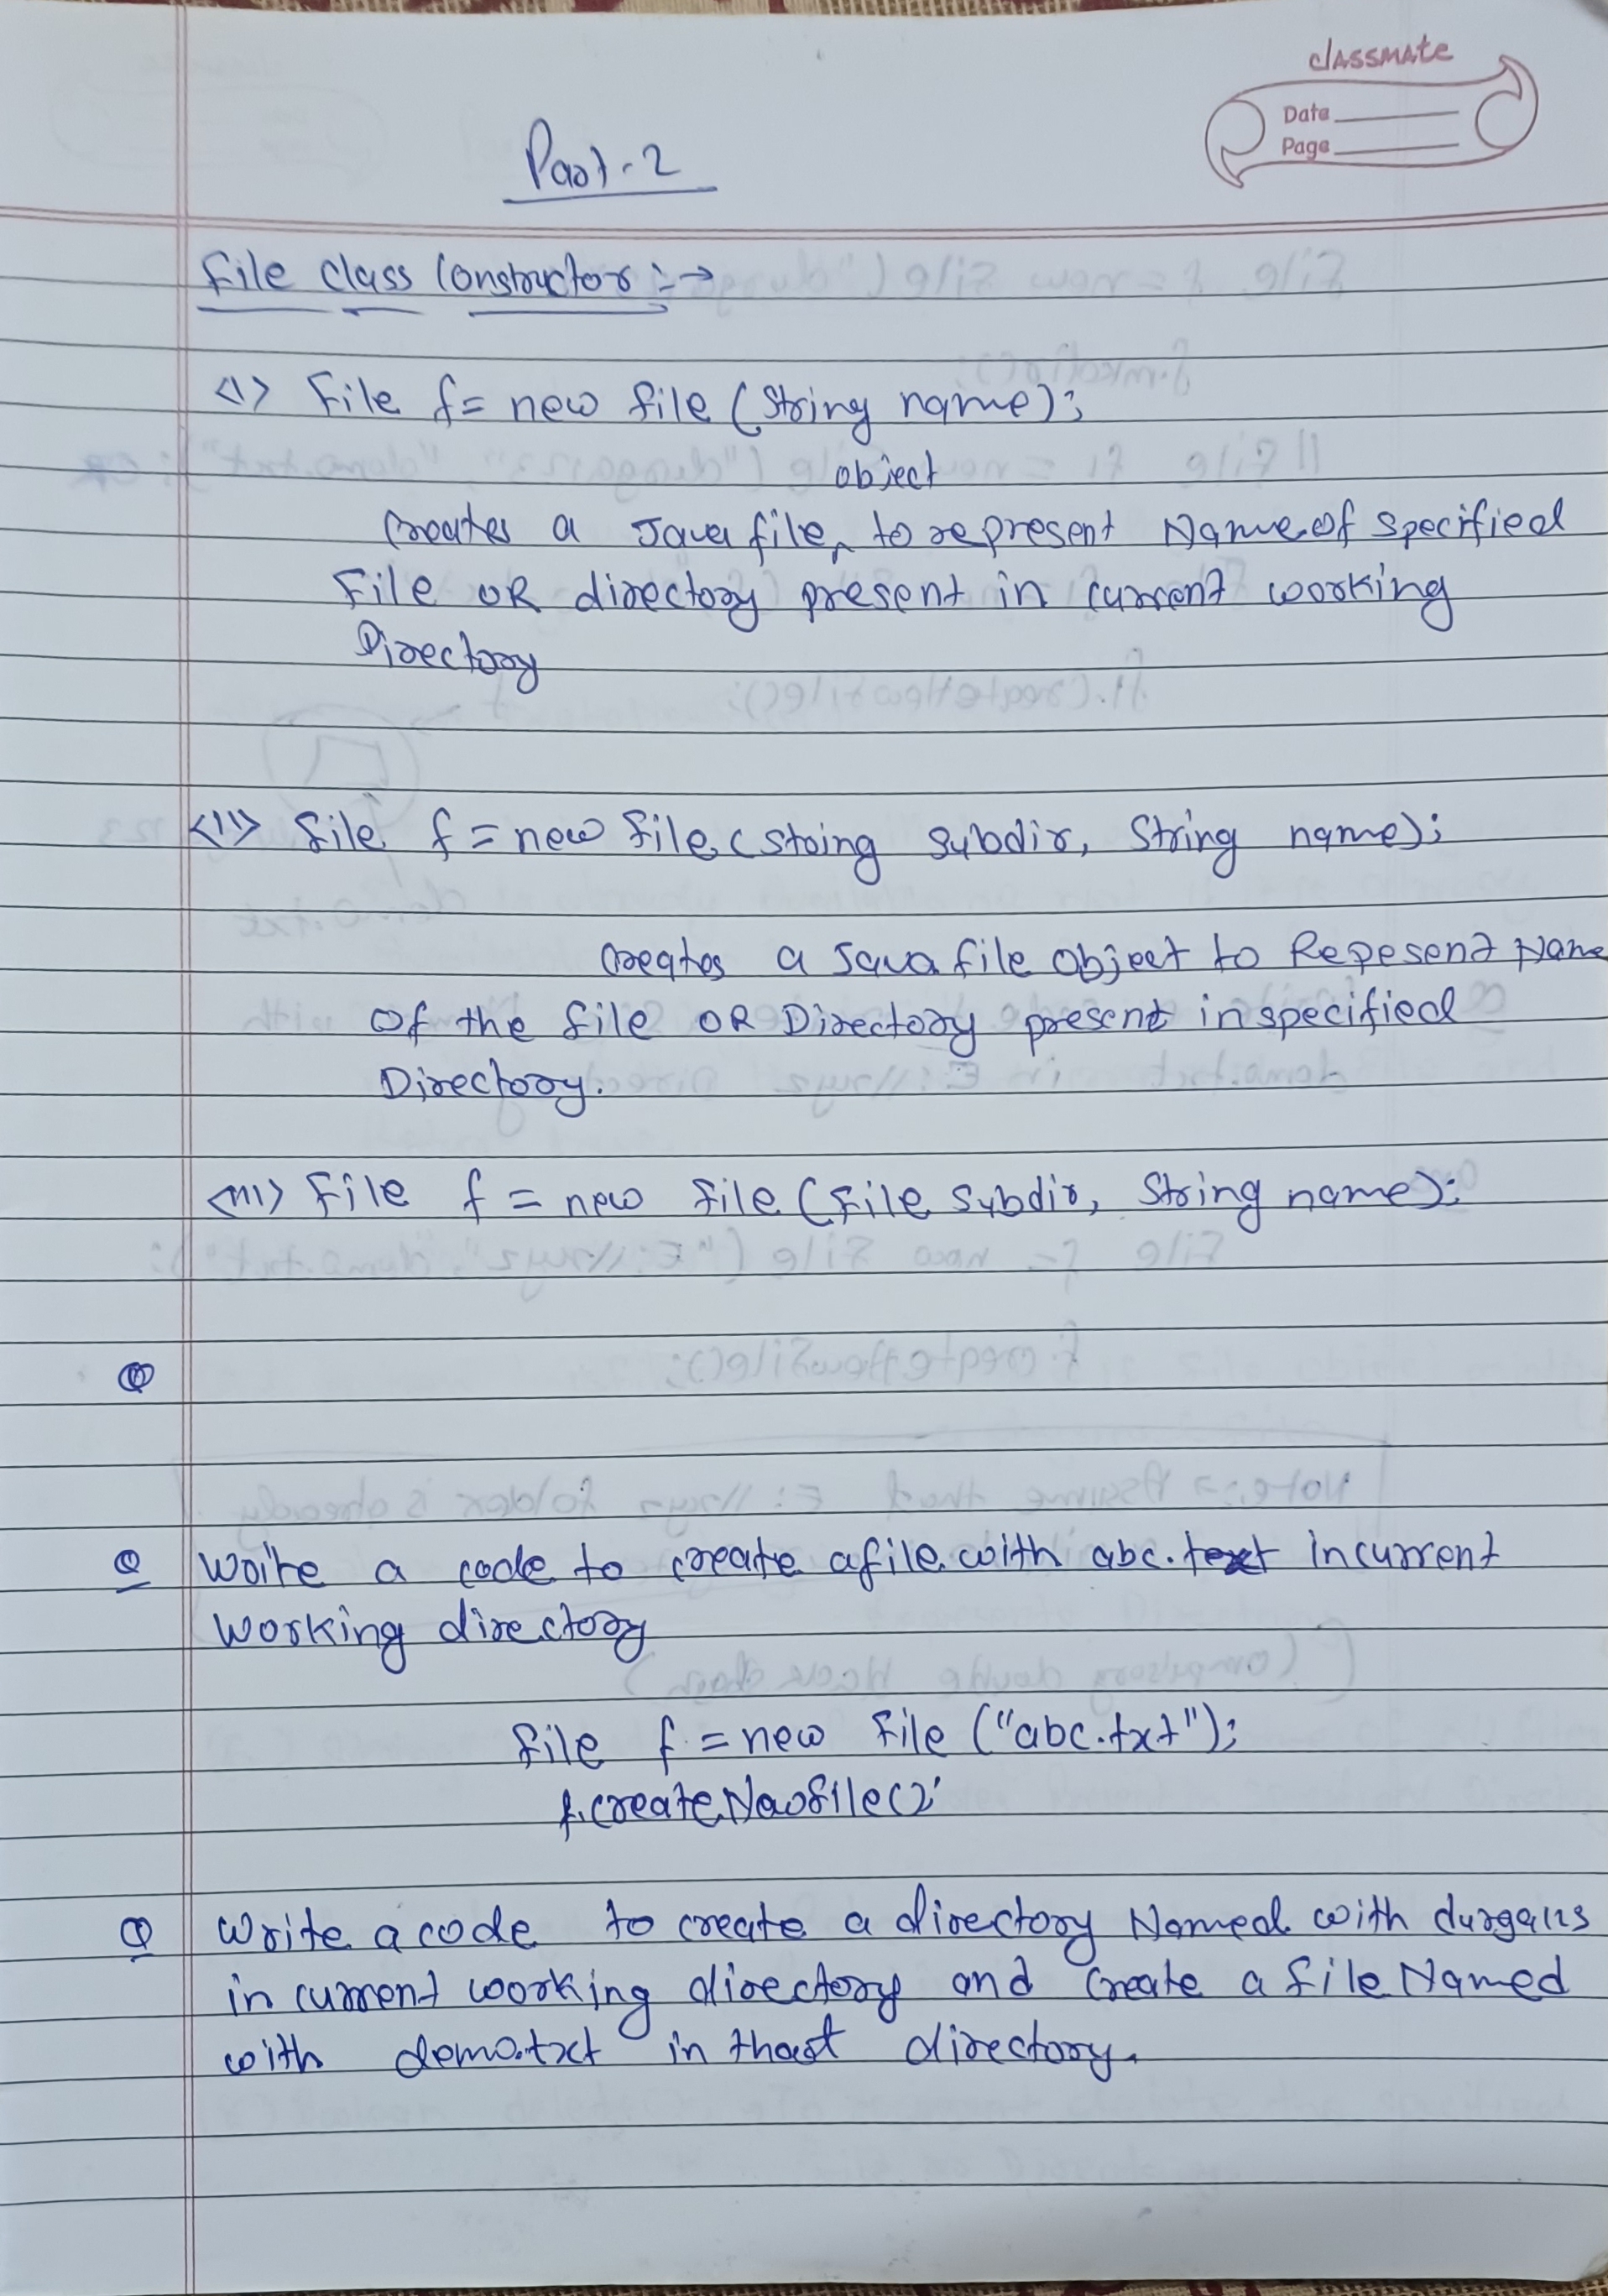 classmate
Date
Page
Part-2
File class Constructor :→
<1> File f = new file (String name);
object
Creates a Java file, to represent Name of specified
File OR directory present in current working
Directory
<11> file f = new file (String subdir, String name);
Creates a Java file Object to Repesent Name
Of the file OR Directory present in specified
Directory.
<111> File f = new File (File subdir, String name);
Q
Q Write a code to create a file with abc.text in current
working directory
File f = new File ("abc.txt");
f.createNewFile();
Q Write a code to create a directory Named with
in current working directory and Create a file Named
with demo.txt in that directory.